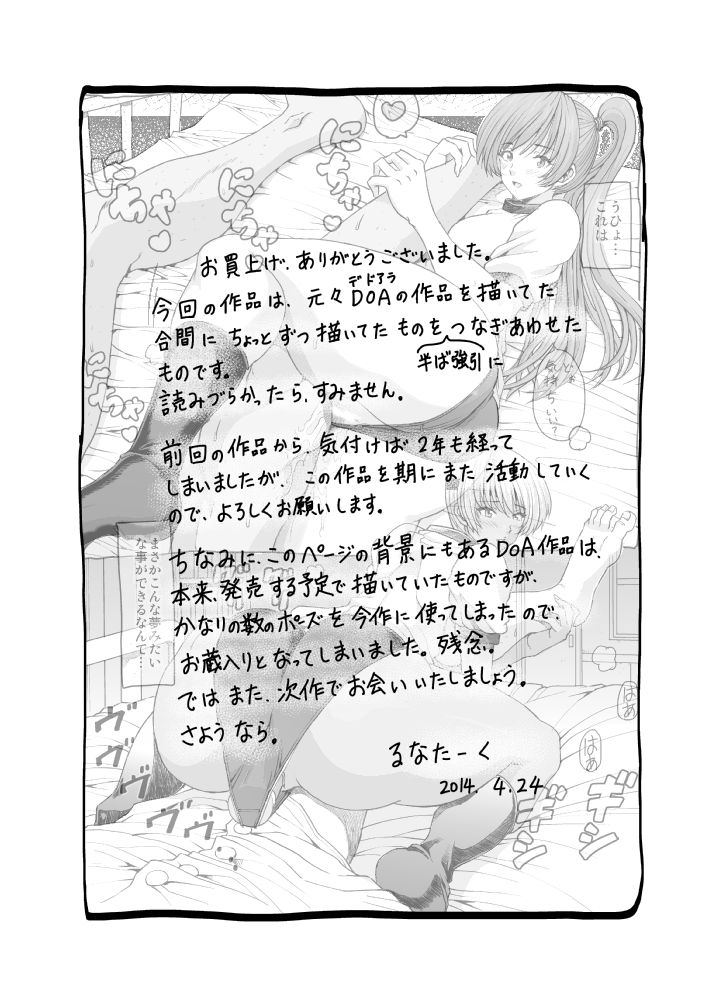 お買上げ、ありがとうございました。
今回の作品は、元々DOAの作品を描いてた
デドアラ
合間にちょっとずつ描いてたものをつなぎあわせた
半ば強引に
ものです。
読みづらかったら、すみません。
前回の作品から、気付けば2年も経って
しまいましたが、この作品を期にまた活動していく
ので、よろしくお願いします。
ちなみに、このページの背景にもあるDOA作品は、
本来、発売する予定で描いていたものですが、
かなりの数のポーズを今作に使ってしまったので、
お蔵入りとなってしまいました。残念。
ではまた、次作でお会いいたしましょう。
さようなら。
るなたーく
2014. 4.24
うひょ…
これは
にちゃ
にちゃ
にちゃ
気持ちいい?
まさかこんな夢みたい
な事ができるなんて…
はぁ
はぁ
ヴヴヴ
ヴヴヴ
ギシ
ギシ